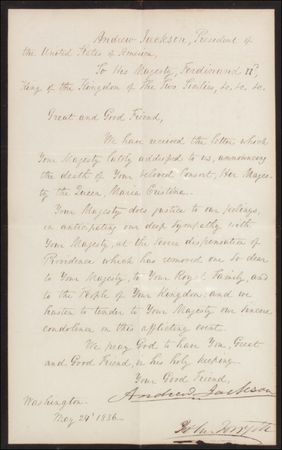 Andrew Jackson, President of
the United States of America,
To His Majesty, Ferdinand II,
King of the Kingdom of the Two Sicilies, &c. &c. &c.
Great and Good Friend,
We have received the letter which
Your Majesty lately addressed to us, announcing
the death of Your beloved Consort, Her Majes-
ty the Queen, Maria Cristina.
Your Majesty does justice to our feelings,
in anticipating our deep sympathy with
Your Majesty, at the severe dispensation of
Providence which has removed one so dear
to Your Majesty, to Your Royal Family, and
to the People of Your Kingdom: and we
hasten to tender to Your Majesty our sincere
condolence on this afflicting event.
We pray God to have You, Great
and Good Friend, in his holy keeping.
Your Good Friend,
Andrew Jackson
Washington
May 24 1836.
John Forsyth